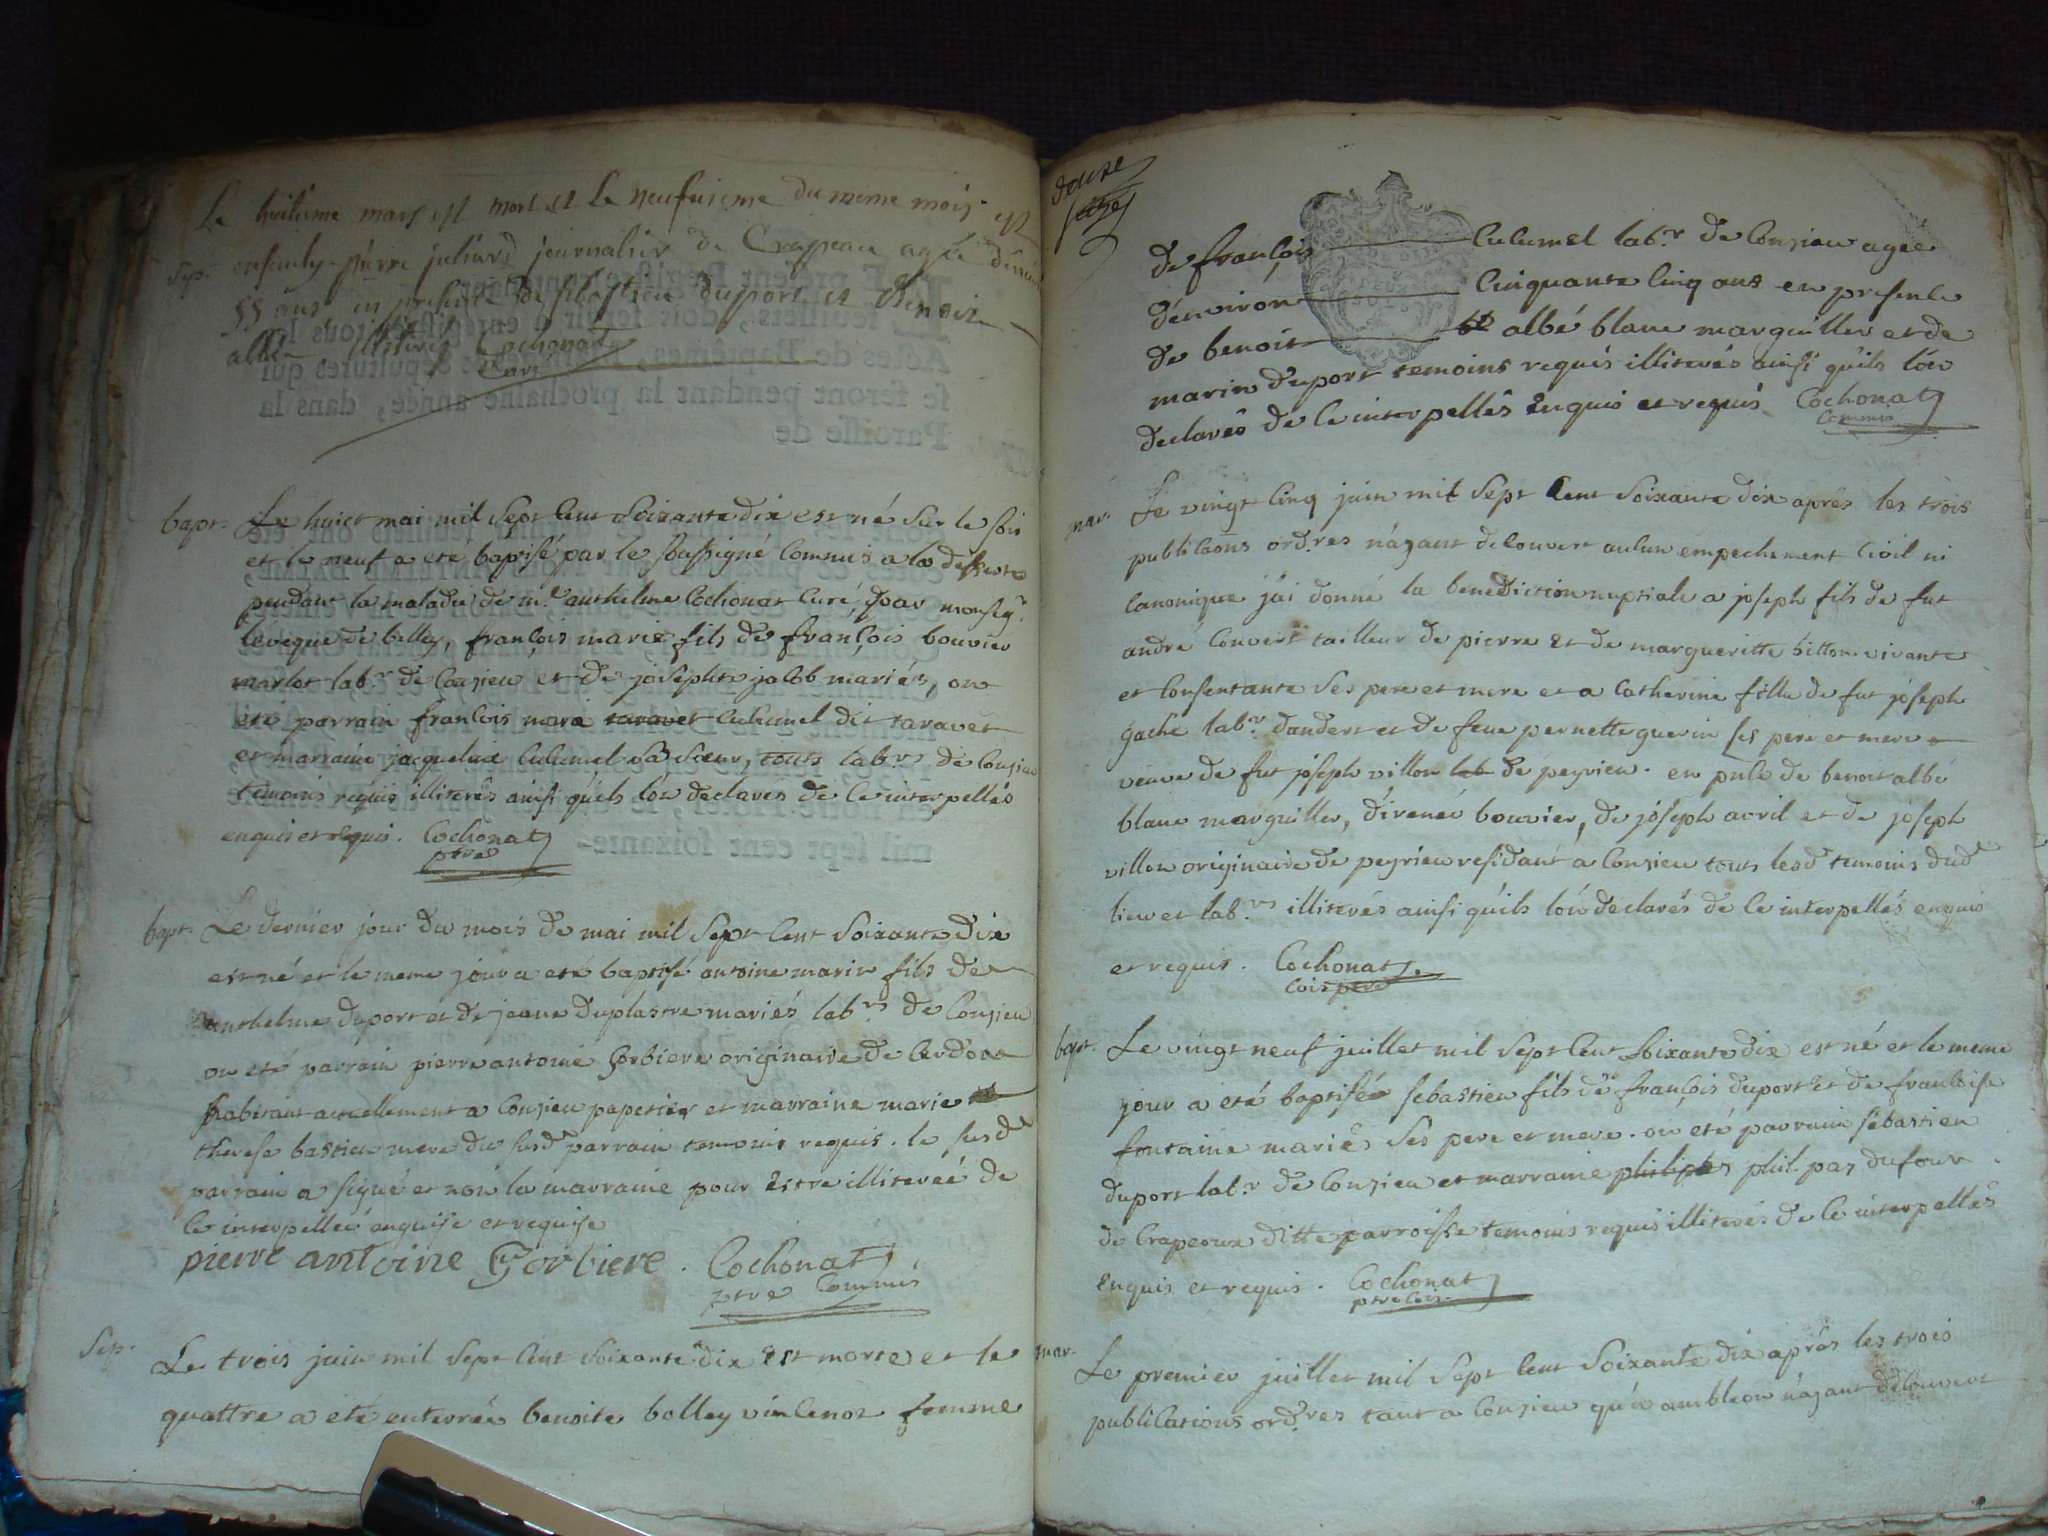 Le huitieme mars est mort et le neufvieme du meme mois est
sep. ensevely pierre juliard journalier de Crapeau agée denviron
55 ans en presence de sebastien duport et Benoit
albé illiterés Cochonat
curé
bapt. Le huict mai mil sept cent soixante dix est né sur le soir
et le neuf a eté baptisé par le soussigné commis a la desserte
pendant la maladie de m.e anthelme Cochonat curé, par monseig.r
leveque de belley, françois marie fils de françois bouvier
marlot lab.r de Conzieu et de josephte jacob mariés, on
eté parrain francois marie taravet culumel dit taravet
et marraine jacqueline culumel sa sœur, touts lab.rs de Conzieu
temoins requis illiterés ainsi quils lon declares de ce interpellés
enquis et requis. Cochonat
ptre
bapt. Le dernier jour du mois de mai mil sept cent soixante dix
est né et le meme jour a eté baptisé antoine marin fils de
anthelme duport et de jeane duplastre mariés lab.rs de Conzieu
on eté parrain pierre antoine Gorbiere originaire de Cerdon
habitant actuellement a Conzieu papetier et marraine marie
therese bastien mere du susd parrain temoins requis. le susd
parrain a signé et non la marraine pour estre illitereé de
ce interpelleé enquise et requise
pierre antoine Gorbiere. Cochonat
ptre Commis
Sep. Le trois juin mil sept cent soixante dix est morte et le
quattre a eté enterrée benoite bolley vincenot femme
douze
de françois culumel lab.r de Conzieu agée
denviron cinquante cinq ans en presence
de benoit albé blanc marguiller et de
marin duport temoins requis illiterés ainsi quils lon
declarés de ce interpellés enquis et requis Cochonat
Commis
mar. Le vingt cinq juin mil sept cent soixante dix après les trois
publicaons ord.res náyant decouvert aulcun empechement civil ni
canonique jái donné la benediction nuptiale a joseph fils de fut
andré convert tailleur de pierre et de margueritte billon vivante
et consentante ses pere et mere et a catherine fille de fut jóseph
gache lab.r dandert et de feue pernette guerin ses pere et mere
veuve de fut jóseph villon lab de peyrieu. en pnce de benoit albé
blanc marguiller, direneé bouvier, de jóseph avril et de jóseph
villon originaire de peyrieu residant á Conzieu touts lesd temoins dud
lieu et lab.rs illiterés ainsi quils lon declarés de ce interpellés enquis
et requis. Cochonat
bapt. Le vingt neuf juillet mil sept cent soixante dix est né et le meme
jour a eté baptisé sebastien fils de françois duport et de francoise
fontaine mariés ses pere et mere. on eté parrain sebastien
duport lab.r de Conzieu et marraine philiphes phil. pas dufour
de Crapeoux ditte parroisse temoins requis illiterés de ce interpellés
enquis et requis. Cochonat
mar. Le premier juillet mil sept cent soixante dix après les trois
publications ord.res tant a Conzieu quá ambleon náyant decouvert